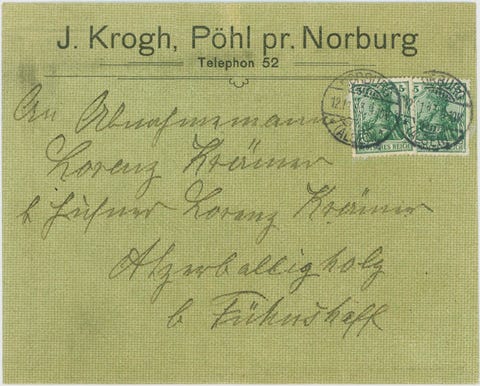 J. Krogh, Pöhl pr. Norburg
Telephon 52
An Abnahmemann
Lorenz Krämer
b Hufner Lorenz Krämer
Atzerballigholz
b Fühnshaff
NORBURG
(ALSEN)
5 5
DEUTSCHES REICH